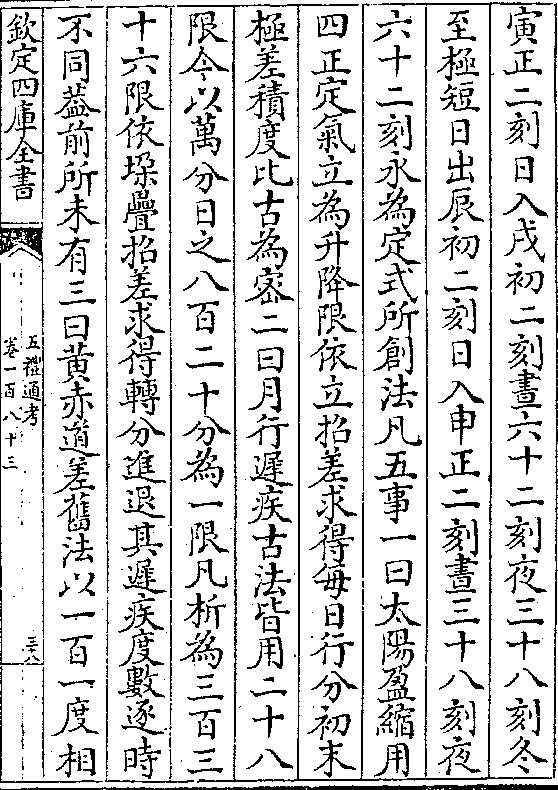 寅正二刻日入戌初二刻晝六十二刻夜三十八刻冬
至極短日出辰初二刻日入申正二刻晝三十八刻夜
六十二刻永為定式所創法凡五事一曰太陽盈縮用
四正定氣立為升降限依立招差求得每日行分初末
極差積度比古為宻二曰月行遲疾古法皆用二十八
限今以萬分日之八百二十分為一限凡析為三百三
十六限依垜疊招差求得轉分進退其遲疾度數逐時
不同葢前所未有三曰黃赤道差舊法以一百一度相
欽定四庫全書
五禮通考
卷一百八十三
三十八